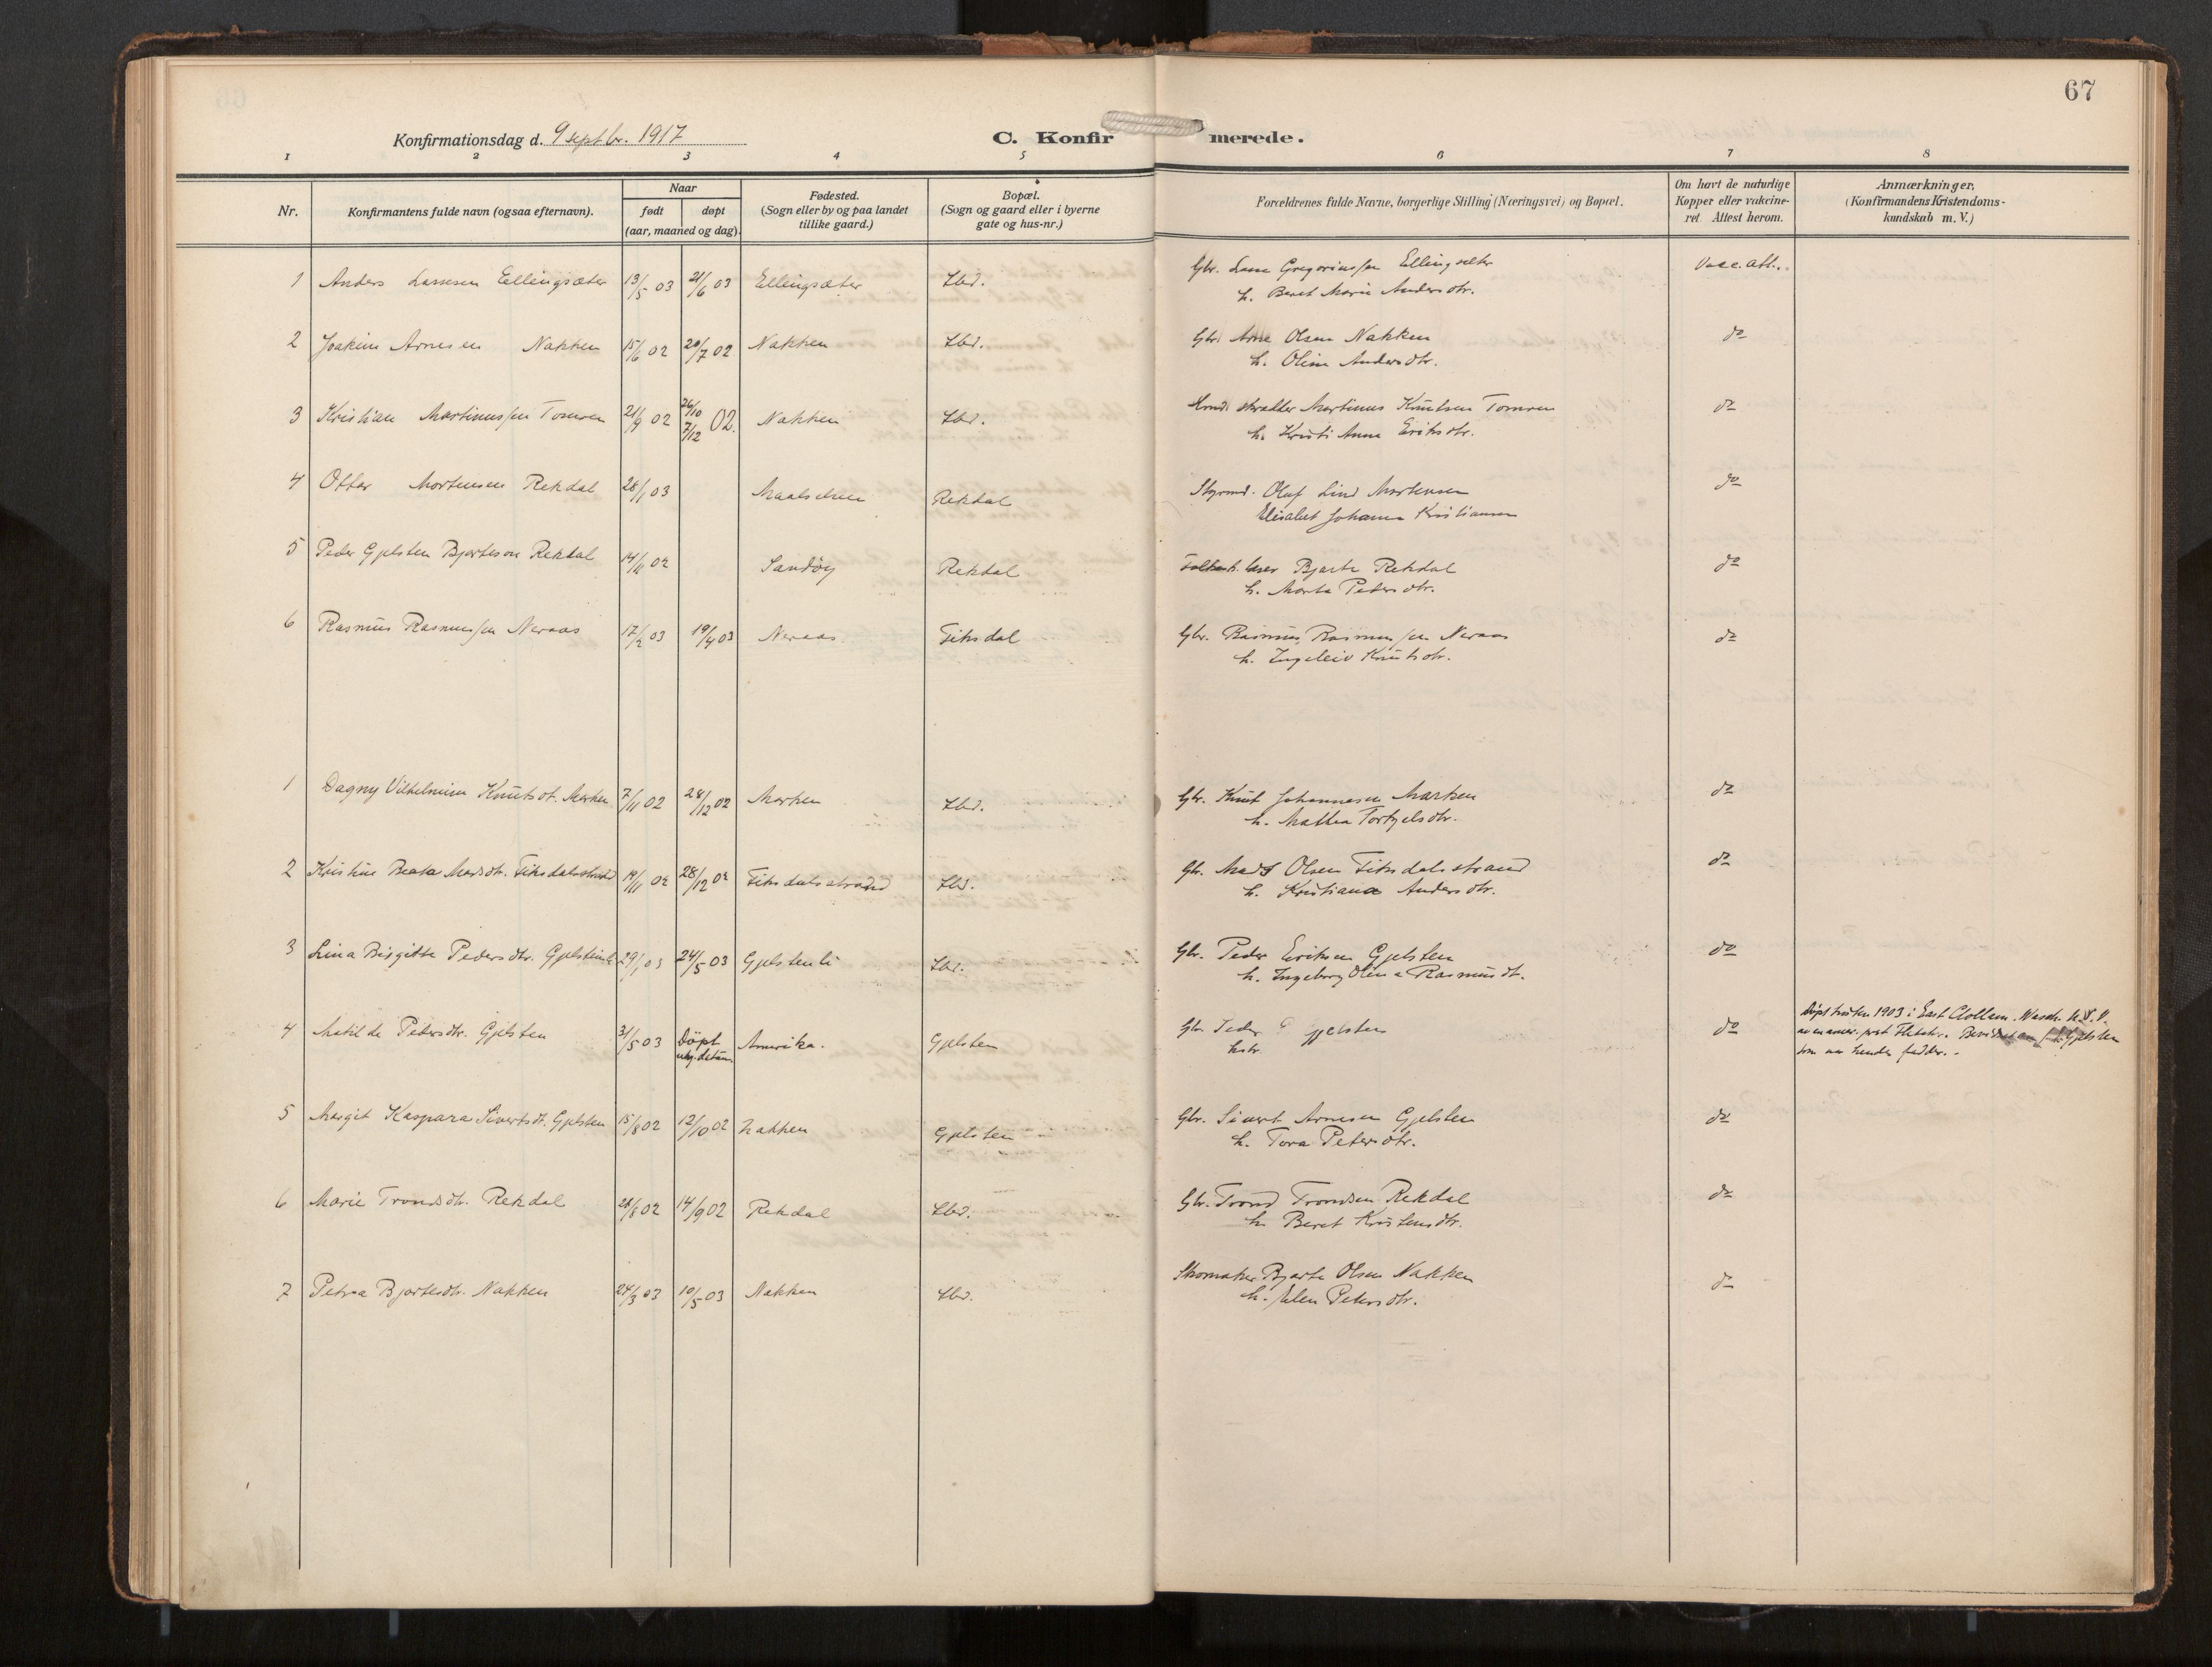 67
Konfirmationsdag d. 9 septbr. 1917
C. Konfirmerede.
1 2 3 4 5 6 7 8
Nr.
Konfirmantens fulde navn (ogsaa efternavn).
Naar
født
døpt
(aar, maaned og dag).
Fødested.
(Sogn eller by og paa landet
tillike gaard.)
Bopæl.
(Sogn og gaard eller i byerne
gate og hus-nr.)
Forældrenes fulde Navne, borgerlige Stilling (Næringsvei) og Bopæl.
Om havt de naturlige
Kopper eller vakcine-
ret. Attest herom.
Anmærkninger.
(Konfirmandens Kristendoms-
kundskab m. V.)
1 Anders Larsesen Ellingsæter 13/5 03 21/6 03 Ellingsæter Ibd. Gbr. Lars Gregoriussen Ellingsæter Vacc. att.
h. Beret Marie Andersdtr.
2 Joakim Arnesen Nakken 15/6 02 20/7 02 Nakken Ibd. Gbr. Arne Olsen Nakken do
h. Olina Andersdtr.
3 Kristian Martinussen Tomren 21/9 02 26/10 7/12 02. Nakken Ibd. skrædder Martinus Knutsen Tomren do
h. Kristi Anna Eriksdtr.
4 Otter Mortensen Rekdal 28/1 03 Maalselven Rekdal Styrmd. Oluf Lind Mortensen do
Elisabet Johanna Kristiansen
5 Peder Gjelsten Bjarteson Rekdal 14/11 02 Sandöy Rekdal Bjarte Rekdal do
h. Marta Petersdtr.
6 Rasmus Rasmussen Neraas 17/2 03 19/4 03 Neraas Fiksdal Gbr. Rasmus Rasmussen Neraas do
h. Ingeleiv Knutsdtr.
1 Dagny Vilhelmine Knutsdt. Marken 7/11 02 28/12 02 Marken Ibd. Gbr. Knut Johannesen Marken do
h. Mathea Torkjelsdtr.
2 Kristine Beata Madsdtr. Fiksdalsstrand 19/11 02 28/12 02 Fiksdalsstrand Ibd. Gbr. Mads Olsen Fiksdalsstrand do
h. Kristiana Andersdtr.
3 Lina Birgitte Pedersdtr. Gjelstenli 29/1 03 24/5 03 Gjelstenli Ibd. Gbr. Peder Eriksen Gjelsten do
h. Ingeborg Olina Rasmusdt.
4 Matilde Petersdtr. Gjelsten 31/5 03 Döpt Amerika. Gjelsten Gbr. Peder E Gjelsten do Döpt hösten 1903 i East Clallam. Wasch. U.S.A.
datum hstr. av en amer. prest Gjelsten
som var hendes fadder.
5 Margit Kaspara Sivertsdt. Gjelsten 15/8 02 12/10 02 Nakken Gjelsten Gbr. Sivert Arnesen Gjelsten do
h. Tora Petersdtr.
6 Marie Trondsdtr. Rekdal 28/8 02 14/9 02 Rekdal Ibd. Gbr. Trond Trondsen Rekdal do
h. Beret Kristensdtr.
7 Petra Bjartesdtr. Nakken 24/3 03 10/5 03 Nakken Ibd. Skomaker Bjarte Olsen Nakken do
h. Elen Petersdtr.